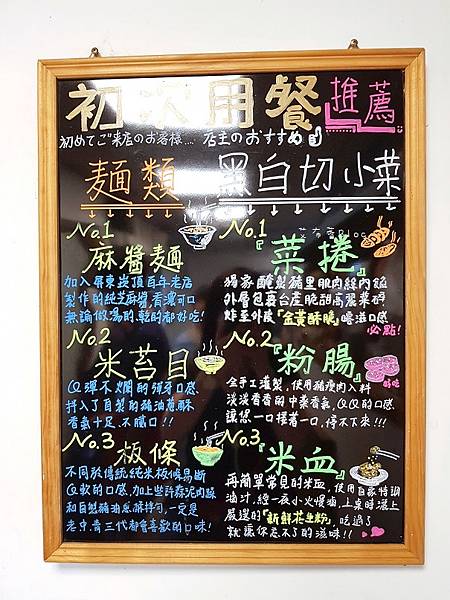 初次用餐 推薦
初めてご来店のお客様.... 店主のおすすめ
麵類
No.1
麻醬麵
加入屏東崁頂百年老店
製作的純芝麻醬,香濃可口
無論做湯的、乾的都好吃!
No.2
米苔目
QQ彈不爛的彈牙口感
拌入了自製的豬油蔥酥
香氣十足、不膩口!!
No.3
板條
不同於傳統純米板條易斷
QQ軟的口感,加上些許蒜泥肉絲
和自製豬油蔥酥拌勻,一定是
老中青三代都會喜歡的口味!
黑白切小菜
No.1
艾方香Blog
『菜捲』
獨家醃製豬里肌肉絲內餡
外層包裹台產脆甜高麗菜碎
炸至外皮「金黃酥脆」唇滋口感
必點!
No.2
『粉腸』
全手工灌製,使用豬瘦肉入料
淡淡香香的中藥香氣,QQ的口感
讓您一口接著一口,停不下來!!!
好吃
No.3
『米血』
再簡單常見的米血,使用自家特調
油汁,經一夜小火慢滷,上桌時灑上
嚴選的「新鮮花生粉」吃過了
就讓你忘不了的滋味!!